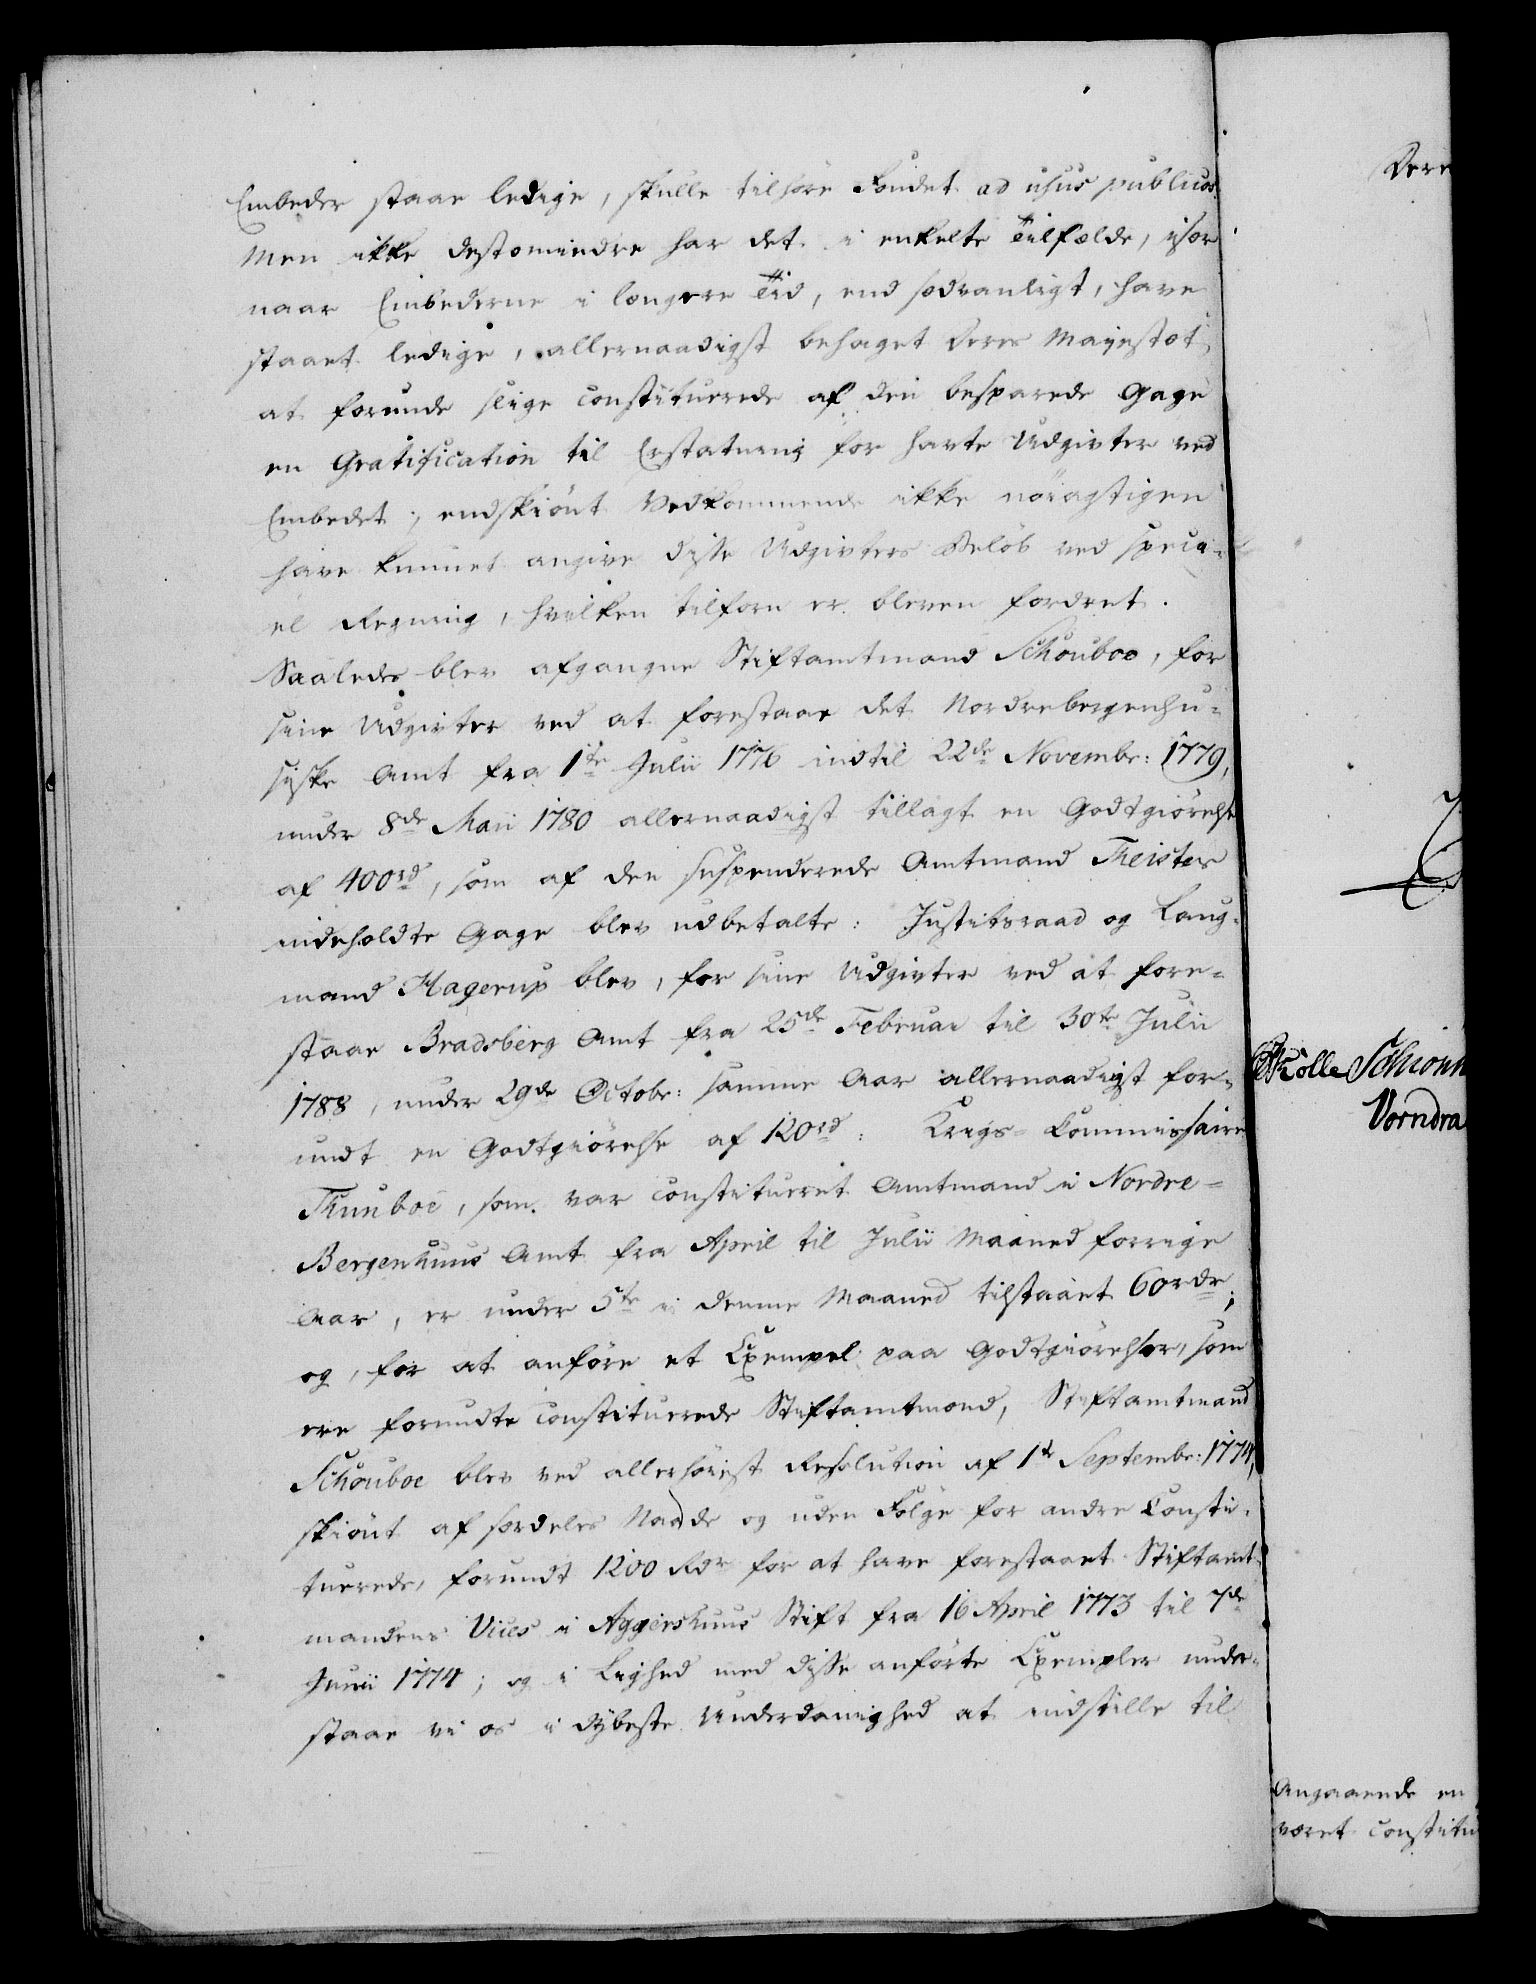 Embeder staae ledige, skulle tilhøre Fondet ad usus publicos.
Men ikke destomindre har det i enkelte Tilfælde, især
naar Embederne i længere Tid, end sædvanligt, have
staaet ledige, allernaadigst behaget Deres Majestæt
at forunde slige constituerede af den besparede Gage
en Gratification til Erstatning for havte Udgivter ved
Embedet; endskiönt Vedkommende ikke nöiagtigen
have kunnet angive disse Udgivters Belöb ved speci-
el Regning, hvilken tilforn er bleven fordret.
Saaledes blev afgangne Stiftamtmand Schouboe, for
sine Udgivter ved at forestaae det Nordrebergenhu-
siske Amt fra 1ste Julii 1776 indtil 22de Novembr: 1779,
under 8de Maii 1780 allernaadigst tillagt en Godtgiörelse
af 400rd, som af den suspenderede Amtmand Theistes
indeholdte Gage blev udbetalte: Justitsraad og Laug-
mand Hagerup blev, for sine Udgivter ved at fore-
staae Bradsberg Amt fra 25de Februar til 30te Julii
1788, under 29de Octobr: samme Aar allernaadigst for-
undt en Godtgiörelse af 120rd: Krigs-Commissaire
Thunboe, som var constitueret Amtmand i Nordre-
Bergenhuus Amt fra April til Julii Maaned forrige
Aar, er under 5te i denne Maaned tilstaaet 60rdr;
og, for at anföre et Exempel paa Godtgiörelser, som
ere forundte constituerede Stiftamtmænd, Stiftamtmand
Schouboe blev ved allerhöiest Resolution af 1te Septembr: 1774,
skiönt af særdeles Naade og uden Fölge for andre Consti-
tuerede, forundt 1200 Rdr for at have forestaaet Stiftamt-
mandens Vices i Aggershuus Stift fra 16 April 1773 til 7de
Junii 1774; og i Lighed med disse anförte Exempler under-
staae vi os i dybeste Underdanighed at indstille til
Dere
Kölle Schiönn
Vorndra
Angaaende en
været constitu